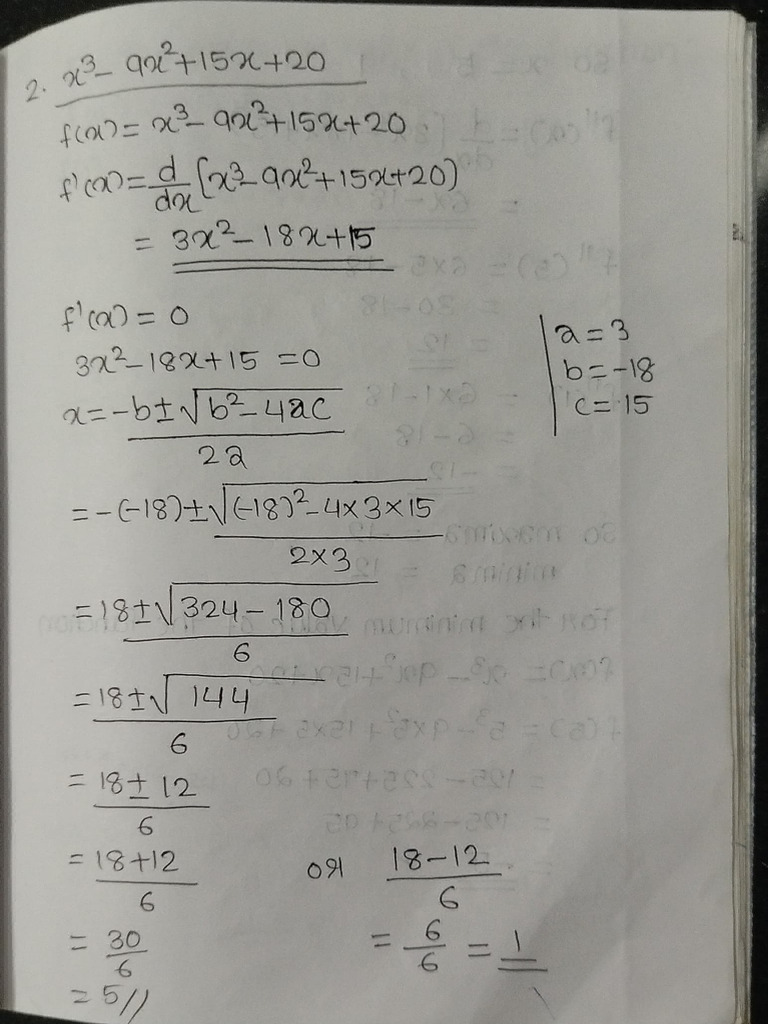 2. x³ - 9x² + 15x + 20
f(x) = x³ - 9x² + 15x + 20
f'(x) = d/dx [x³ - 9x² + 15x + 20)
= 3x² - 18x + 15
f'(x) = 0
3x² - 18x + 15 = 0
a = 3
b = -18
c = 15
x = -b ± √b² - 4ac / 2a
= -(-18) ± √(-18)² - 4 × 3 × 15 / 2×3
= 18 ± √324 - 180 / 6
= 18 ± √144 / 6
= 18 ± 12 / 6
= 18 + 12 / 6 or 18 - 12 / 6
= 30 / 6 = 6 / 6 = 1
= 5 //